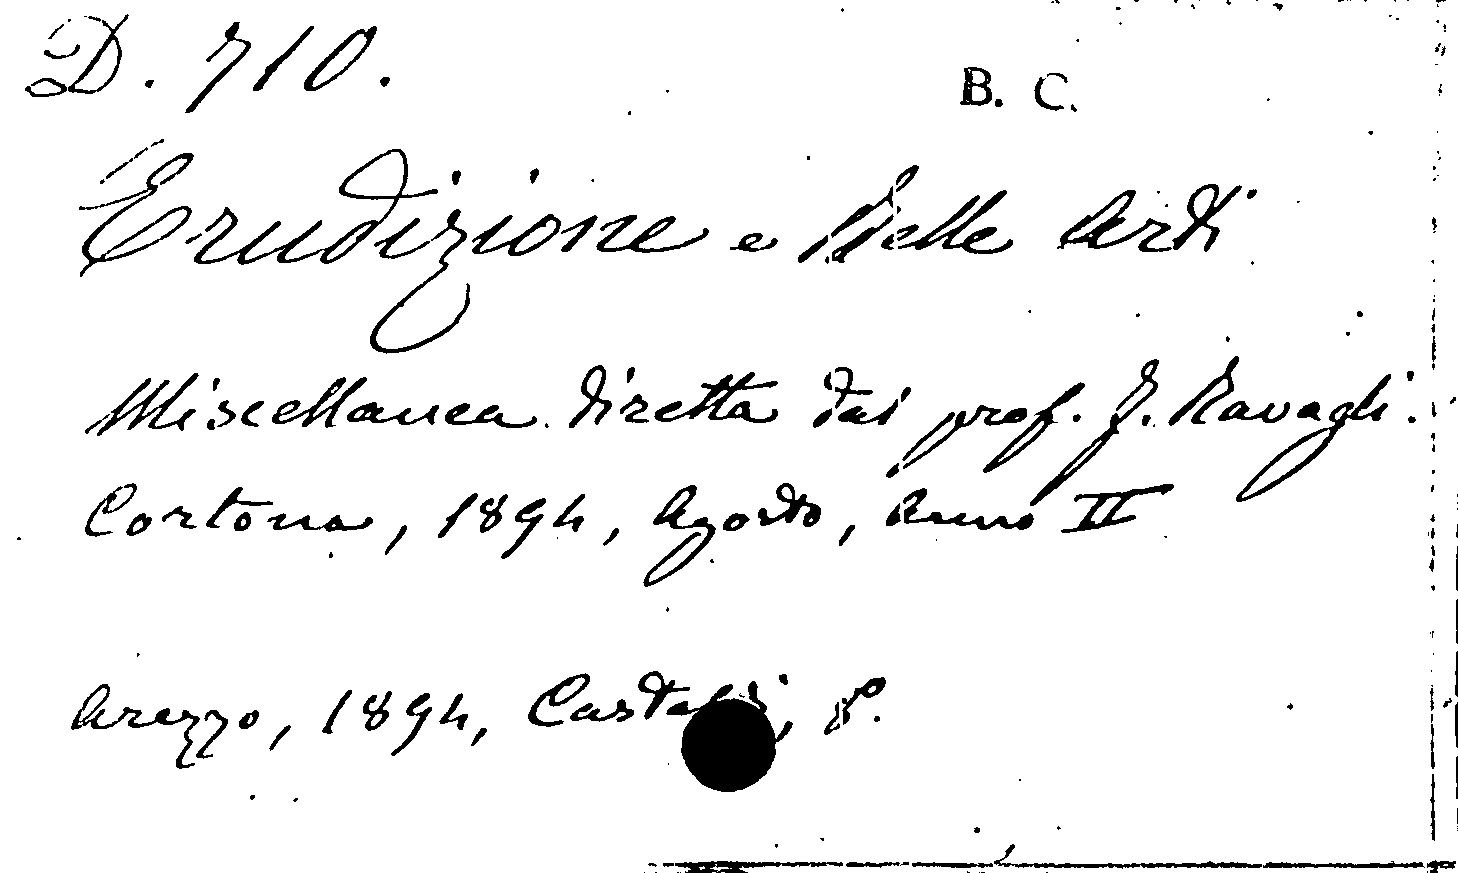 D. 710.
B. C.
Erudizione e Belle Arti
Miscellanea diretta dal prof. F. Ravagli.
Cortona, 1894, Agosto, Anno II
Arezzo, 1894, 8°.